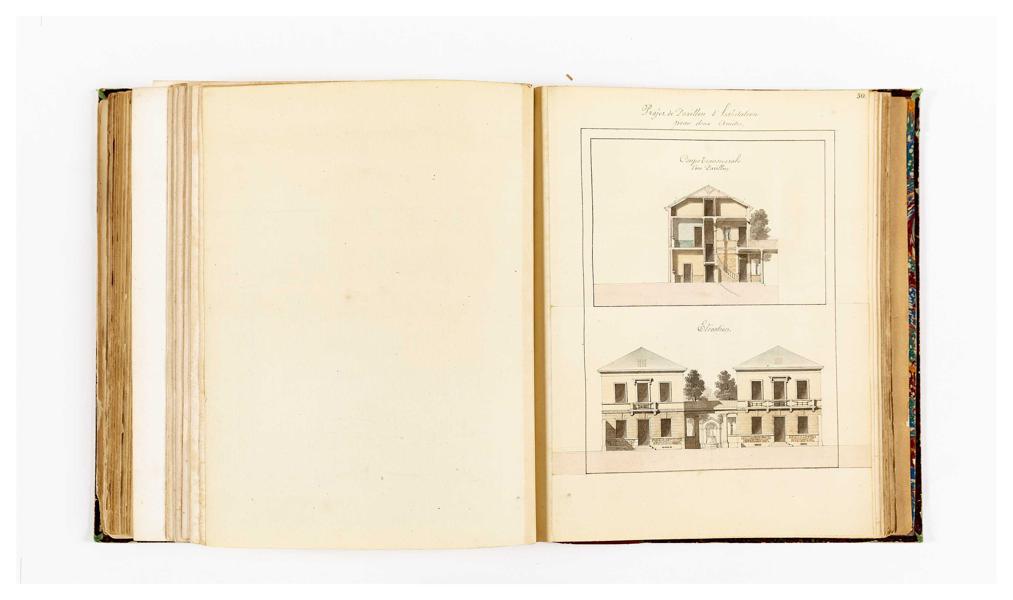 50.
Projet de Pavillon d'habitation
pour deux Amis.
Coupe transversale
d'un Pavillon.
Elévation.